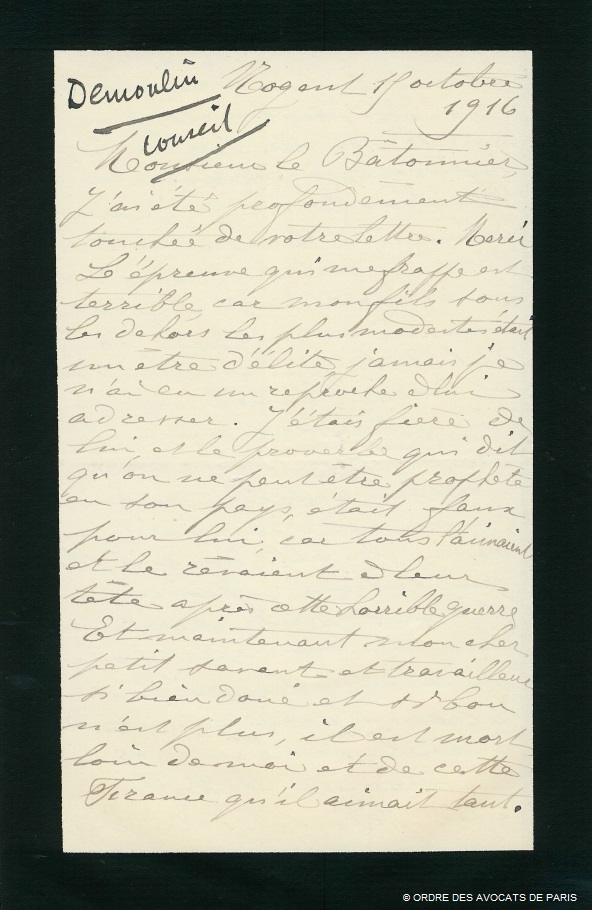 Demoulin
conseil
Nogent 15 octobre
1916
Monsieur le Bâtonnier,
J'ai été profondément
touchée de votre lettre. Merci
L'épreuve qui me frappe est
terrible, car mon fils sous
les dehors les plus modestes était
un être d'élite, jamais je
n'ai eu un reproche à lui
adresser. J'étais fière de
lui, et le proverbe qui dit
qu'on ne peut être prophète
en son pays, était faux
pour lui, car tous l'aimaient
et le rêvaient à leur
tête après cette horrible guerre
Et maintenant mon cher
petit savant et travailleur
si bien doué et si bon
n'est plus, il est mort
loin de moi et de cette
France qu'il aimait tant.
© ORDRE DES AVOCATS DE PARIS